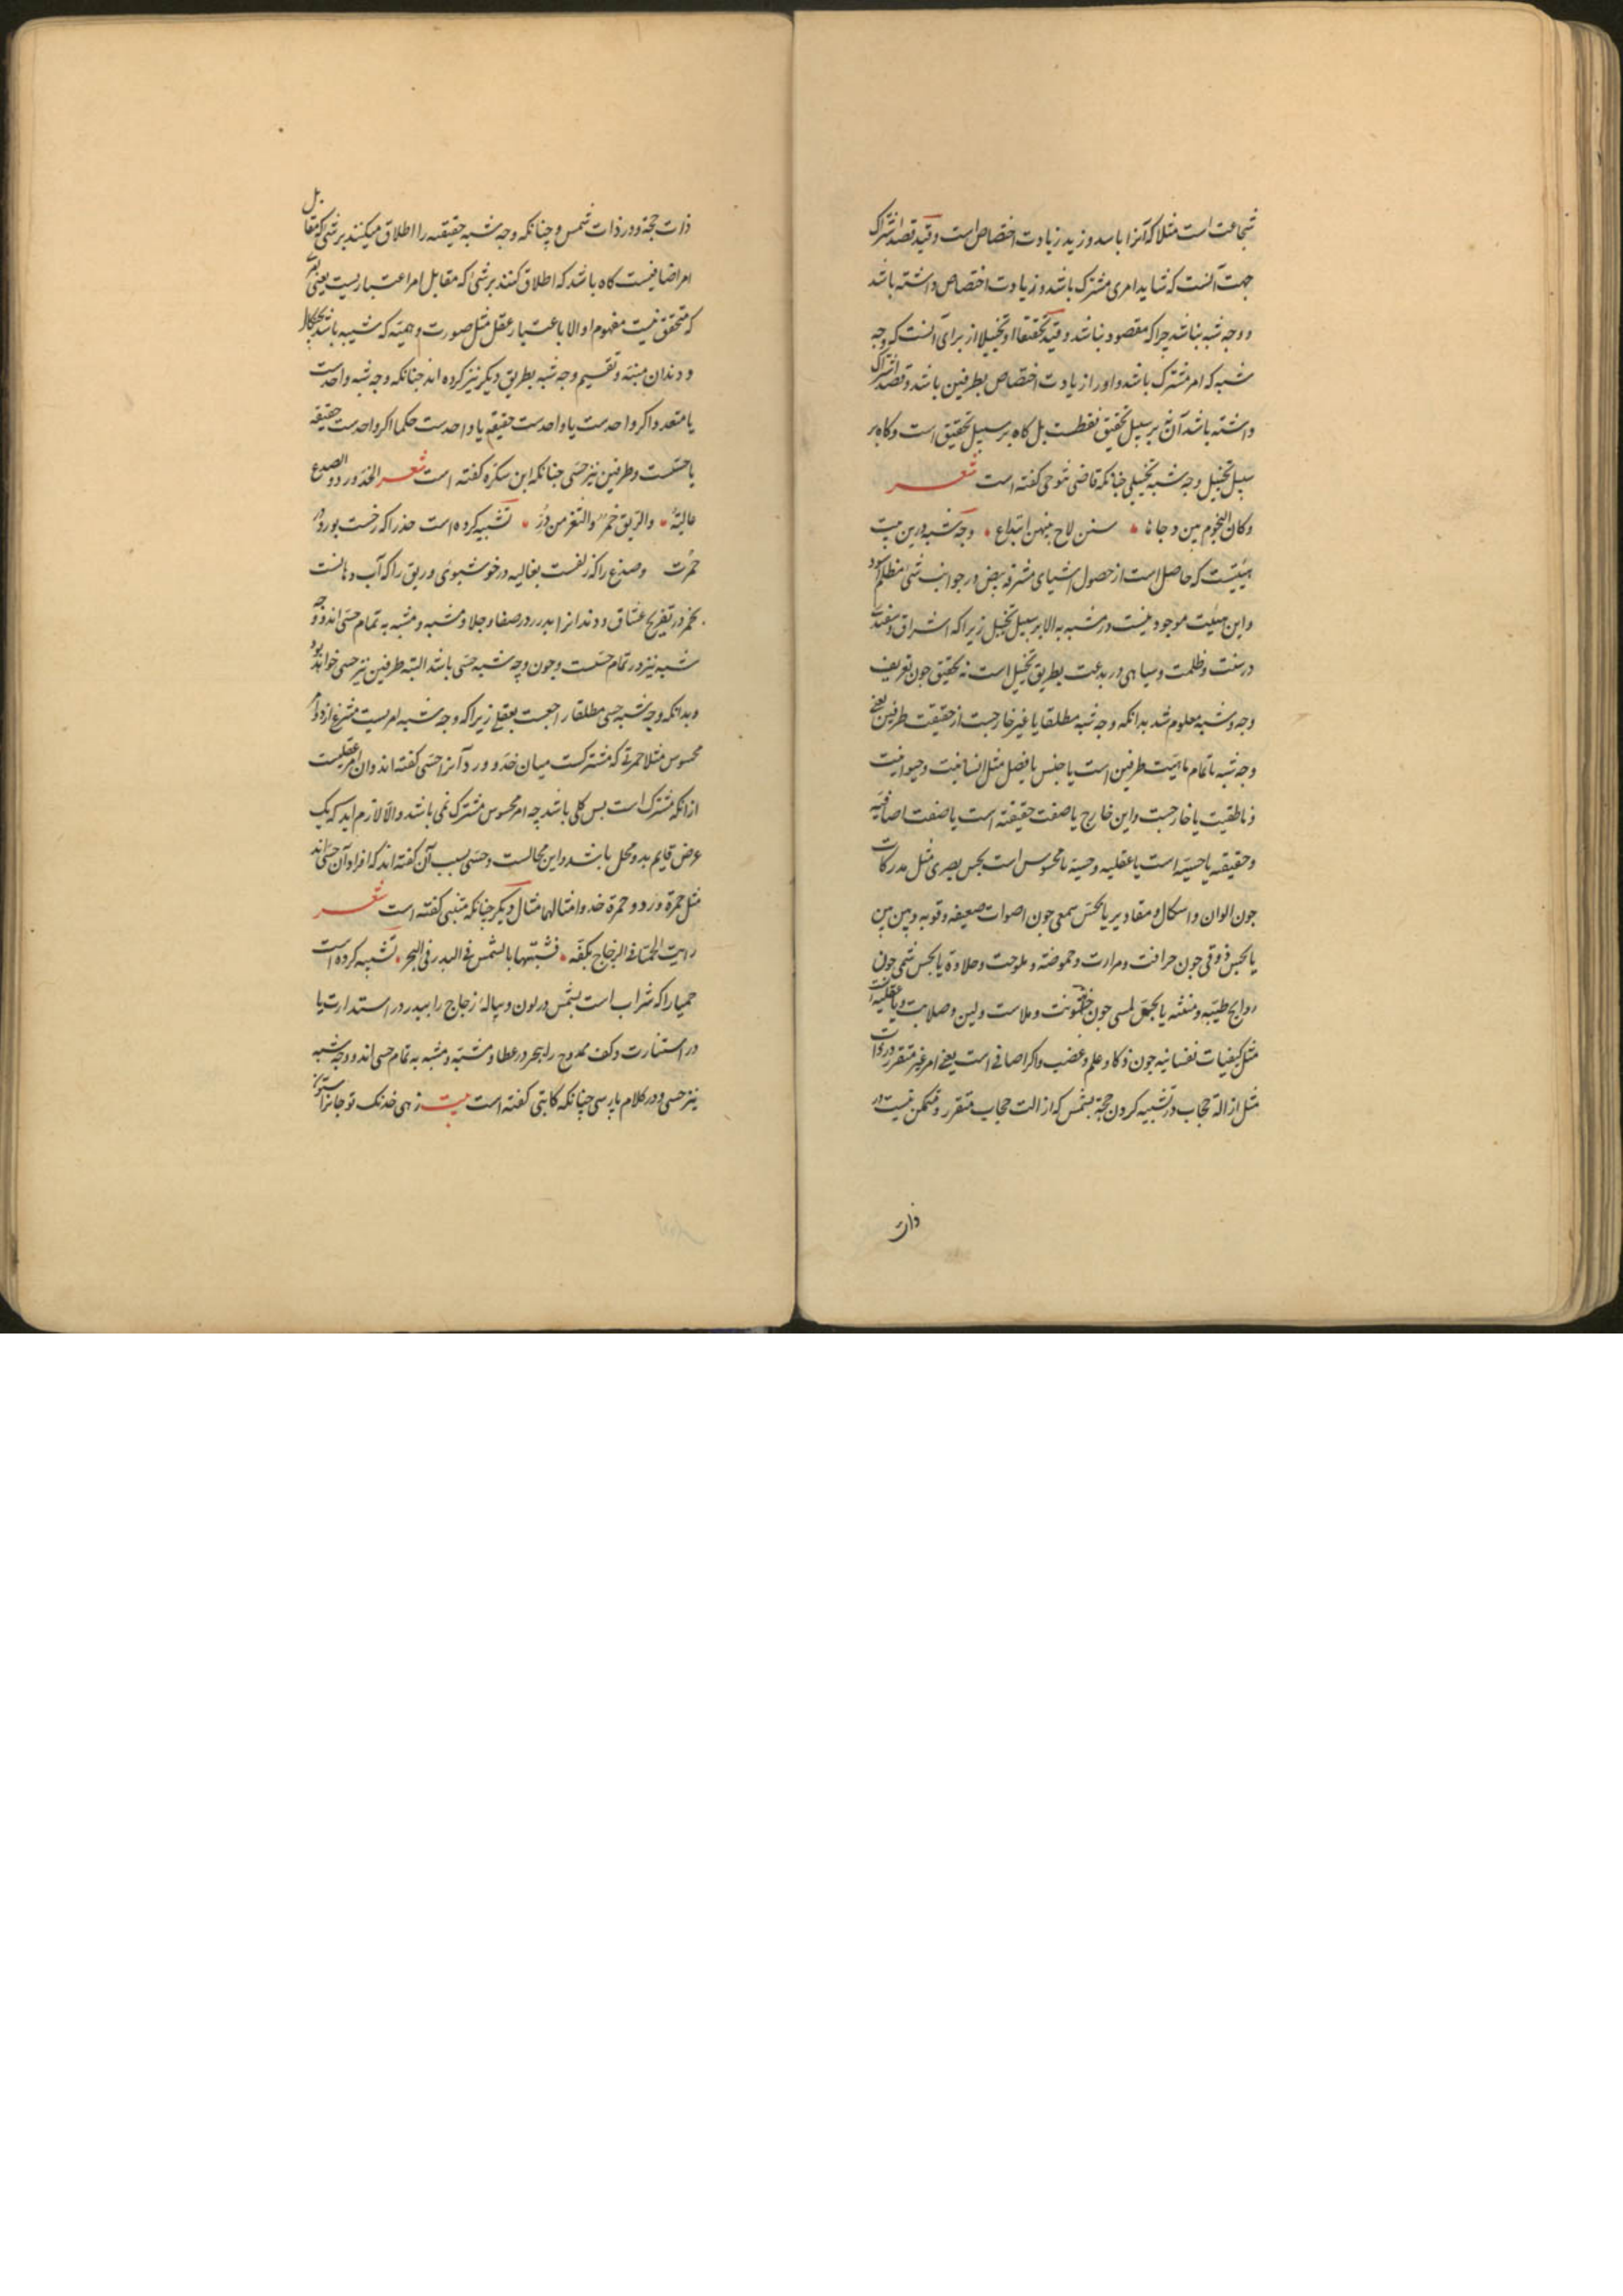 شجاعت است مثلا که آنرا با اسد و زید زیادت اختصاص است و قید قصد اشتراک
جهت آنست که شاید امری مشترک باشد و زیادت اختصاص داشته باشد
و وجه شبه نباشد چرا که مقصود نباشد و قید تحقیقا او تخییلا از برای آنست که وجه
شبه که امر مشترک باشد و او را زیادت اختصاص بطرفین باشد و قصد اشتراک
داشته باشد آن نه بر سبیل تحقیق فقطست بل کاه بر سبیل تحقیق است و کاه بر
سبیل تخییل وجه شبه تخییلی چنانکه قاضی تنوخی کفته است شعر
وکان النجوم بین دجاها سنن لاح بینهن ابتداع وجه شبه درین بیت
هیئتیست که حاصل است از حصول اشیای مشرقه بیض در جوانب شئ مظلم اسود
و این هیئت موجود نیست در مشبه به الا بر سبیل تخییل زیرا که اشراق و سفیدی
در سنت و ظلمت و سیاهی در بدعت بطریق تخییل است نه تحقیق چون تعریف
وجه شبه معلوم شد بدانکه وجه شبه مطلقا یا غیر خارجست از حقیقت طرفین یعنی
وجه شبه یا تمام ماهیت طرفین است یا جنس یا فصل مثل انسانیت و حیوانیت
و ناطقیت یا خارجست و این خارج یا صفت حقیقیه است یا صفت اضافیه
و حقیقیه یا حسیه است یا عقلیه و حسیه یا محسوس است بحس بصری مثل مدرکات
چون الوان و اشکال و مقادیر یا بحس سمعی چون اصوات ضعیفه و قویه و بین بین
یا بحس ذوقی چون حرافت و مرارت و حموضه و ملوحت و حلاوة یا بحس شمی چون
روایح طیبه و منتنه یا بحس لمسی چون خشونت و ملاست و لین و صلابت و یا عقلیه است
مثل کیفیات نفسانیه چون ذکا و علم و غضب و اکر اضافی است یعنی امر غیر متقرر در ذات
مثل ازالة حجاب در تشبیه کردن حجة بشمس که ازالت حجاب متقرر و متمکن نیست در
ذات
ذات حجة و در ذات شمس و چنانکه وجه شبه حقیقیه را اطلاق میکنند بر شئ که مقابل
امر اضافیست کاه باشد که اطلاق کنند بر شئ که مقابل امر اعتباریست یعنی
که متحقق نیست مفهوم او الا باعتبار عقل مثل صورت وهمیه که شبیه باشد بچنکال
و دندان منیه و تقسیم وجه شبه بطریق دیکر نیز کرده اند چنانکه وجه شبه واحدست
یا متعدد و اکر واحدست یا واحدست حقیقه یا واحدست حکما اکر واحدست حقیقه
یا حسیست و طرفین نیز حسی چنانکه ابن سکره کفته است شعر الخد ورد و الصدغ
غالیة والریق خمر والثغر من در تشبیه کرده است خد را که رخست بورد در
حمرت و صدغ را که زلفست بغالیه در خوشبوئی و ریق را که آب دهانست
بخمر در تفریح عشاق و دندانرا بدر در صفا و جلا و مشبه و مشبه به تمام حسی اند و وجه
شبه نیز در تمام حسیست و چون وجه شبه حسی باشد البته طرفین نیز حسی خواهد بود
و بدانکه وجه شبه حسی مطلقا راجعست بعقلی زیرا که وجه شبه امریست منتزع از دو امر
محسوس مثلا حمرتی که مشترکست میان خد و ورد آنرا حسی کفته اند و آن امر عقلیست
از آنکه مشترک است پس کلی باشد چه امر محسوس مشترک نمی باشد و الا لازم اید که یک
عرض قایم بدو محل باشد و این محالست و حسی بسبب آن کفته اند که افراد آن حسی اند
مثل حمرة ورد و حمرة خد و امثالها مثال دیکر چنانکه متنبی کفته است شعر
رایت الحمیا فی الزجاج بکفه فشبهتها بالشمس فی البدر فی البحر تشبیه کرده است
حمیا را که شراب است بشمس در لون و پیاله زجاج را ببدر در استدارت یا
در استنارت و کف ممدوح را ببحر در عطا و مشبه و مشبه به تمام حسی اند و وجه شبه
نیز حسی و در کلام پارسی چنانکه کاتبی کفته است بیت زهی خدنک تو جانرا